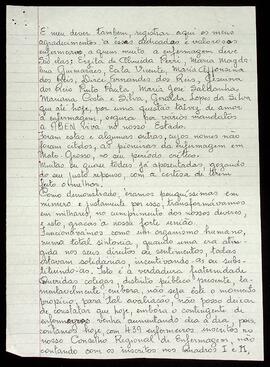 É meu dever também, registrar aqui os meus
agradecimentos a essas dedicadas e valorosas
enfermeiras, a quem muito a enfermagem deve
São elas: Ezila de Almeida Perri, Maria Magda
lena Guimarães, Eata Vicente, Maria Affonsina
dos Reis, Dirce Fernandes dos Reis, Jessurina
dos Reis Pinto Paula, Maria José Saldanha,
Mariana Costa e Silva, Geralda Lopes da Silva
que até hoje, por uma questão talvez, de amor
à enfermagem, segura por vários mandatos
a ABEn viva no nosso Estado.
Foram estas e algumas outras, cujos nomes não
foram citados, as pioneiras da enfermagem em
Mato-Grosso, no seu período crítico.
Muitas ou quase todas, já aposentadas, gozando
do seu justo repouso, com a certeza de terem
feito o melhor.
Como demonstrado, éramos pouquíssimas em
número e justamente por isso, transformávamos
em milhares, no cumprimento dos nossos deveres,
e isto, graças a nossa forte união.
Funcionávamos como um organismo humano,
numa total sintonia, quando uma era atin-
gida nos seus direitos ou sentimentos, todas
estavam solidárias incentivando-as ou subs-
tituindo-as. Isto é a verdadeira fraternidade
Queridas colegas, distinto público presente, la-
mentavelmente, embora, não seja este o momento
propício, para tal avaliação, não posso deixar
de constatar que hoje, embora o contingente de
enfermagem venha aumentando dia a dia, pois,
contamos hoje, com 439 enfermeiros inscritos no
nosso Conselho Regional de Enfermagem, não
contando com os inscritos nos Quadros I e II,